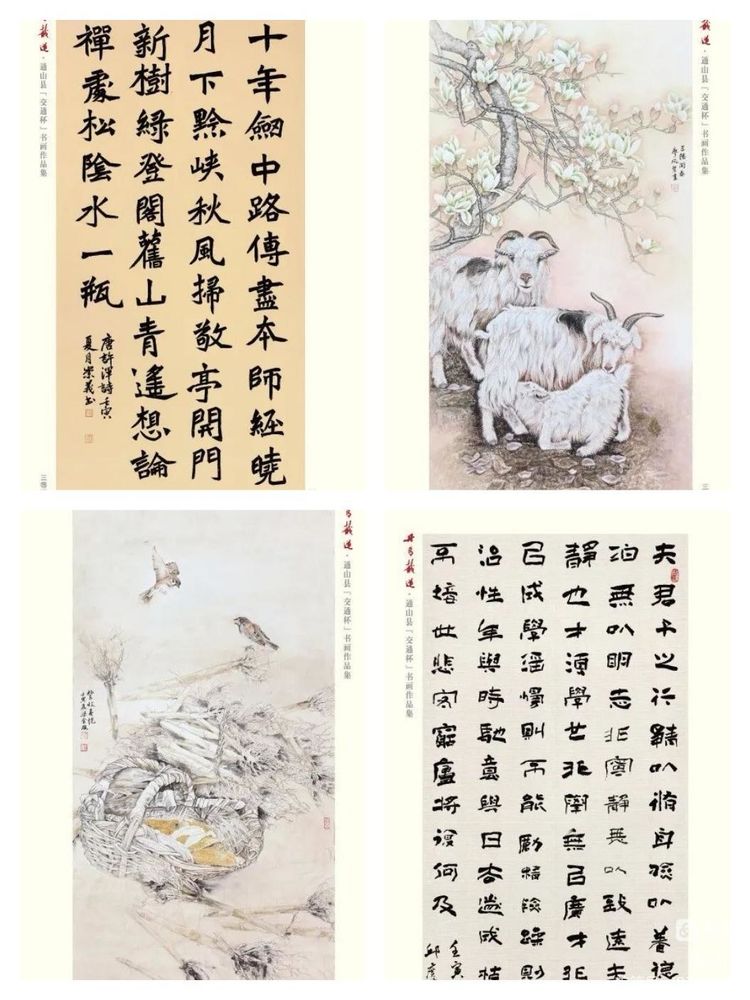 載道·通山县「交通杯」书画作品集
十年劒中路傳盡本師經曉
月下黔峽秋風掃敬亭開門
新樹綠登閣舊山青遙想論
禪處松陰水一瓶
唐許渾詩壬寅
夏月崇義書
載道·通山县「交通杯」书画作品集
載道·通山县「交通杯」书画作品集
丹青載道·通山县「交通杯」书画作品集
夫君子之行靜以脩身儉以養德
泊無以明志非寧靜無以致遠夫
靜也才須學也非學無以廣才非
以成學淫慢則不能勵精險躁則
冶性年與時馳意與日去遂成枯
不接世悲守窮廬將復何及
壬寅